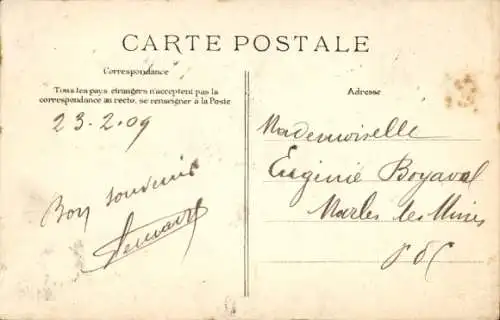 CARTE POSTALE
Correspondance
Tous les pays étrangers n'acceptent pas la
correspondance au recto, se renseigner à la Poste
23.2.09
Bon souvenir
Adresse
Mademoiselle
Eugénie Boyaval
Marles les Mines
PdC